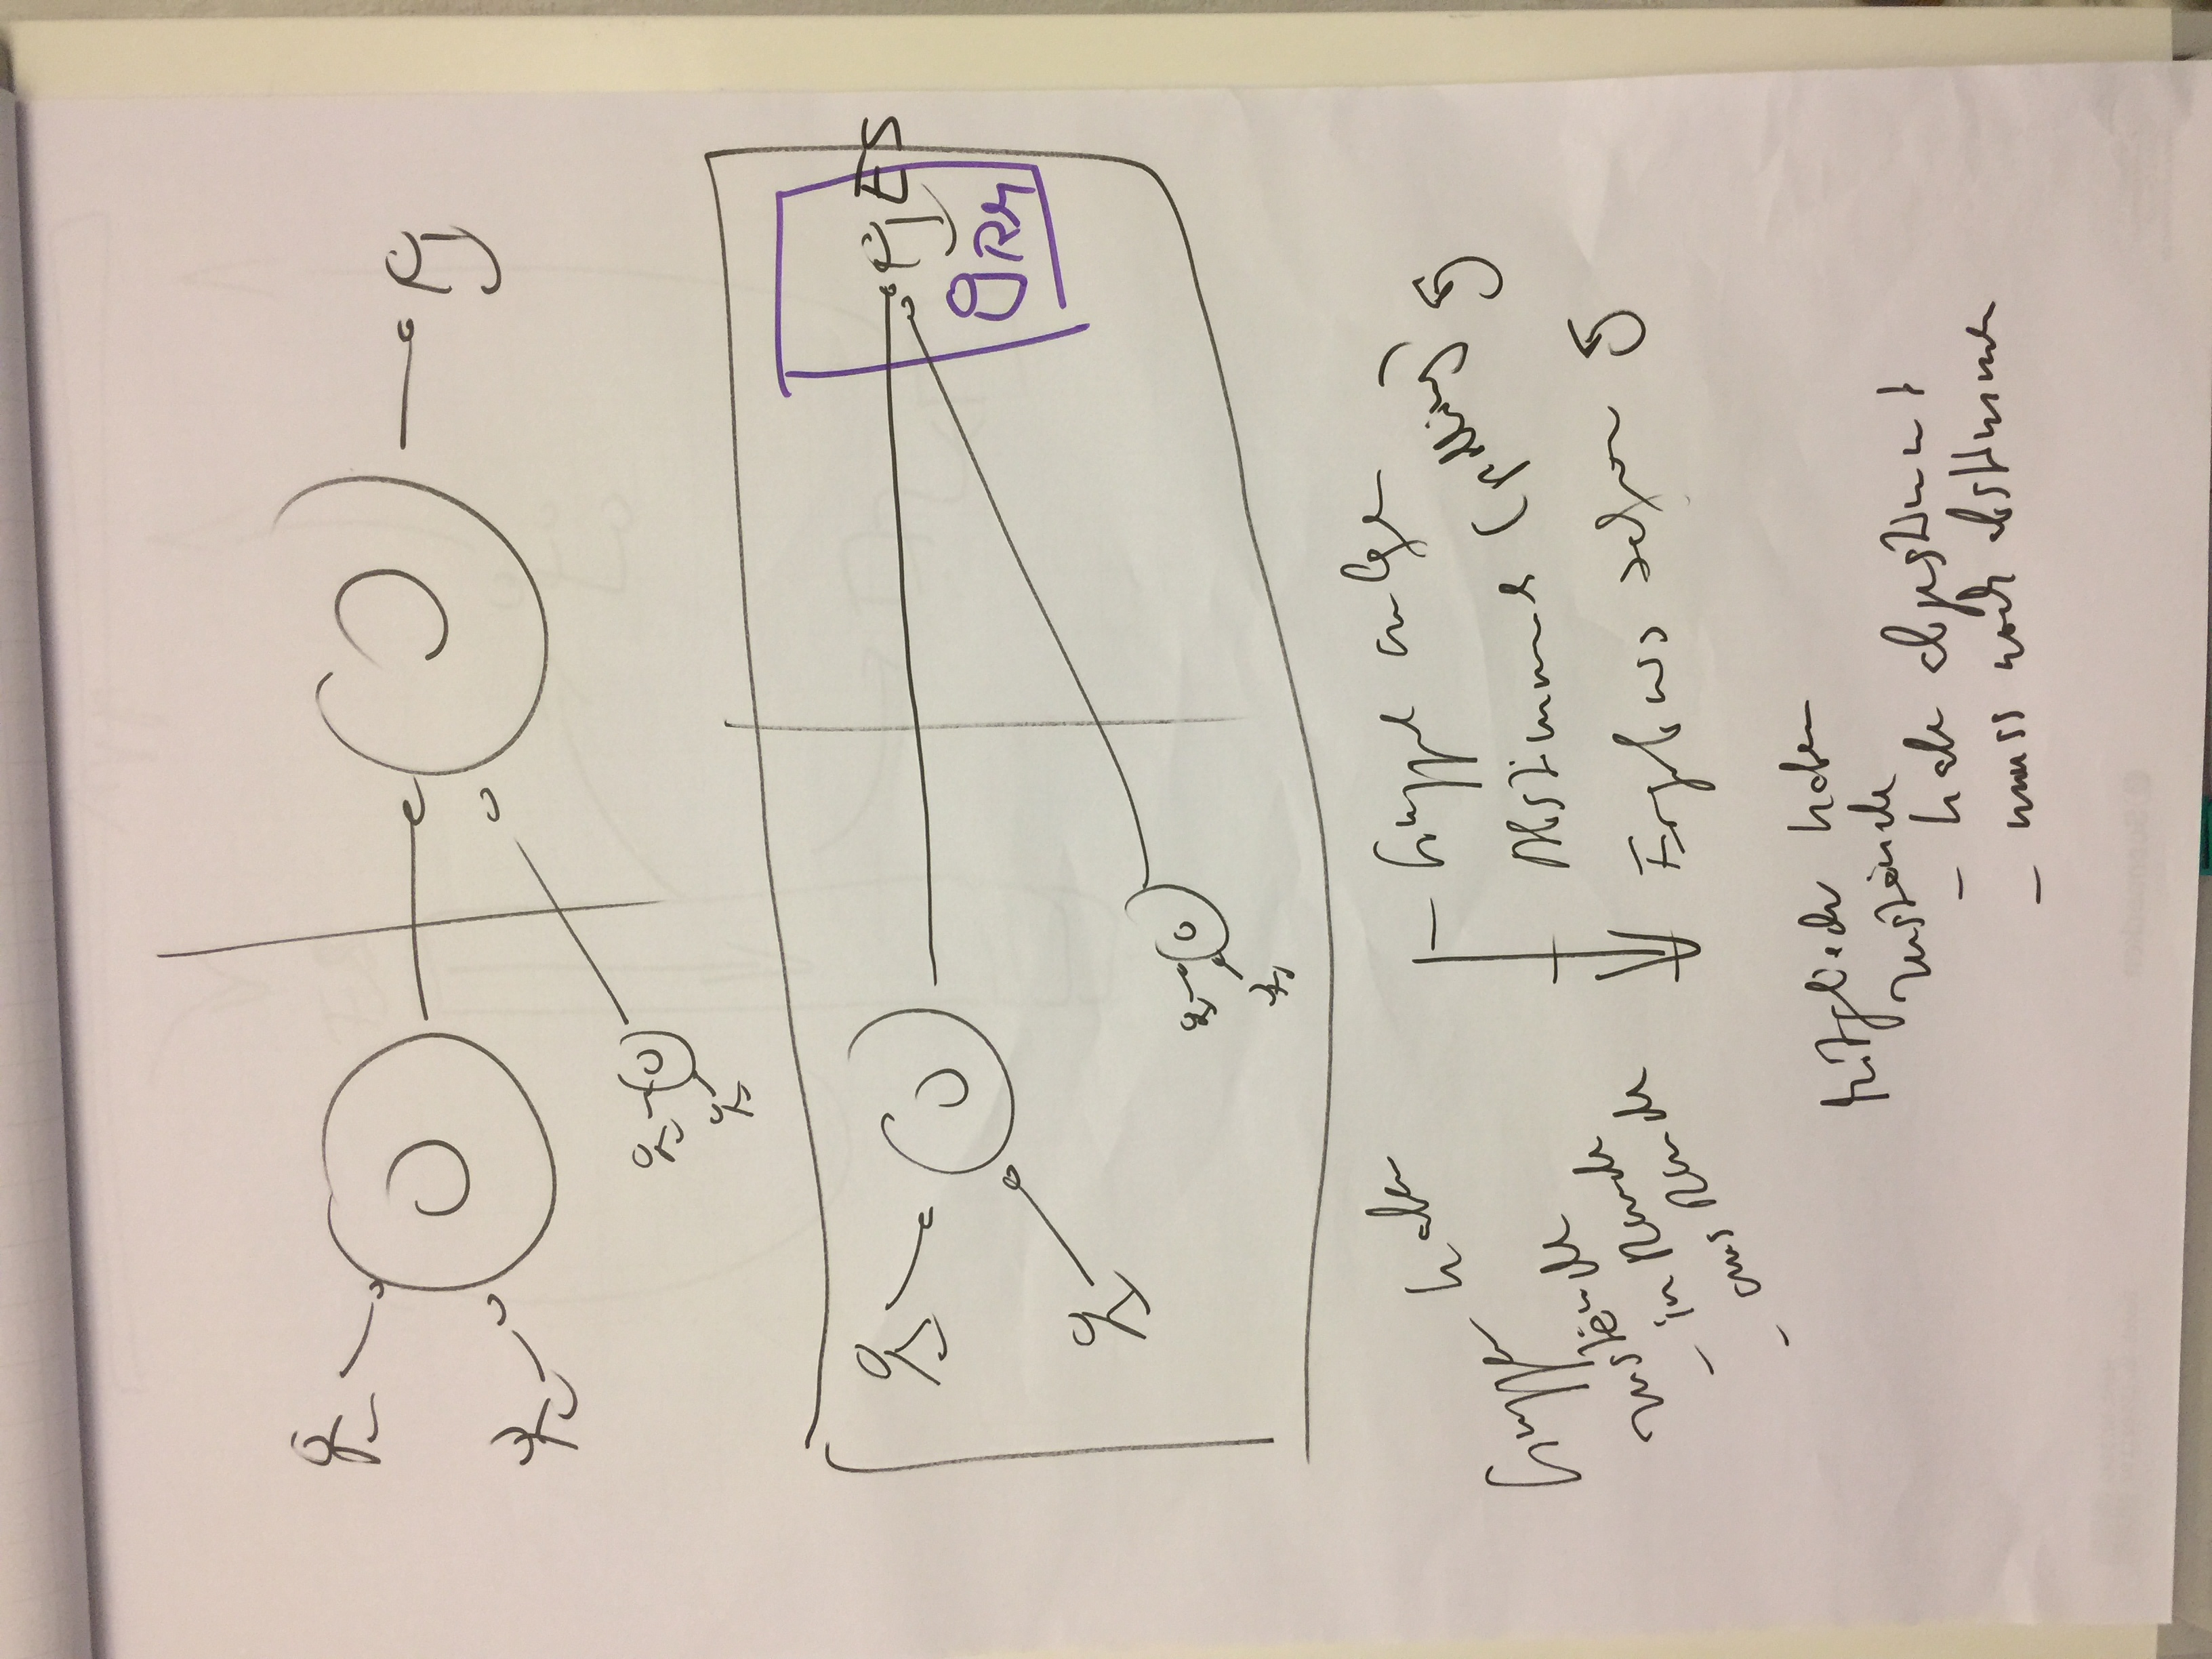 ES
RM
Gruppen haben
Zustände
- in Runde
- aus Runde
Gruppe anlegen
Abstimmung (polling)
Ergebnis sehen
Mitglieder haben
Zustände
- habe abgestimmt
- muss noch abstimmen